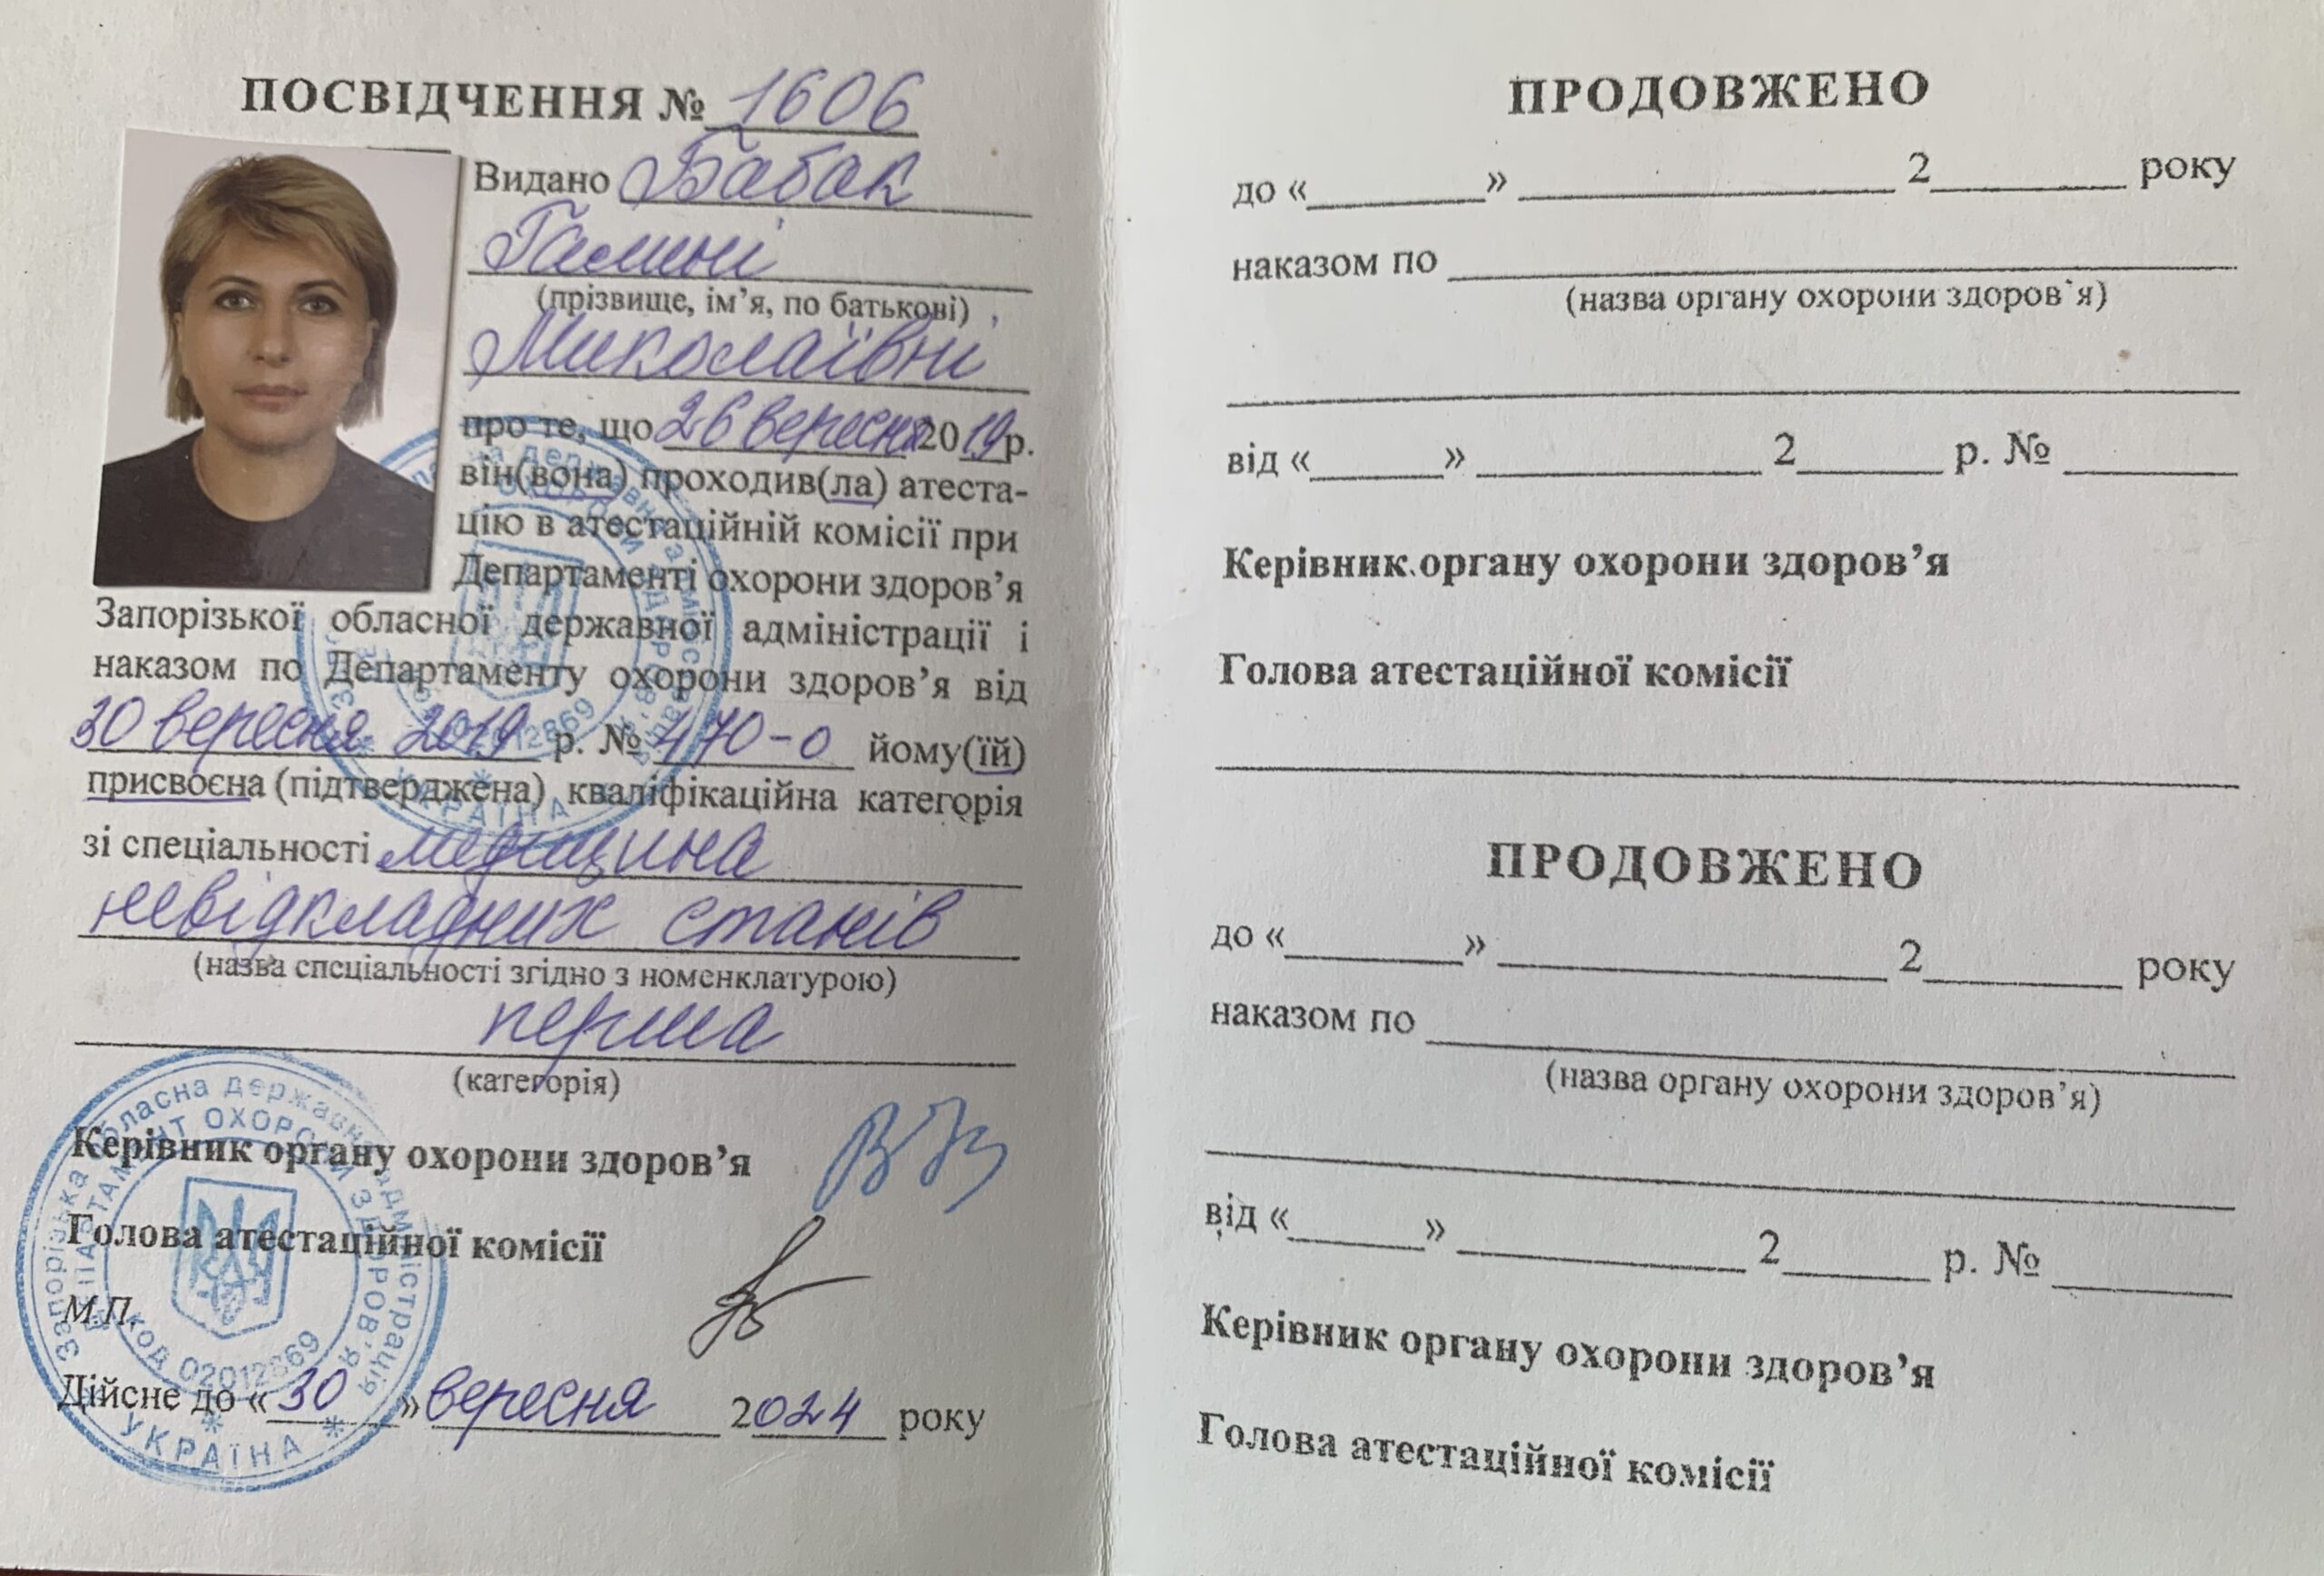 ПОСВІДЧЕННЯ № 1606
Видано Бабак
Галині
(прізвище, ім’я, по батькові)
Миколаївні
про те, що 26 вересня 2019 р.
він(вона) проходив(ла) атеста-
цію в атестаційній комісії при
Департаменті охорони здоров’я
Запорізької обласної державної адміністрації і
наказом по Департаменту охорони здоров’я від
30 вересня 2019 р. № 470-о йому(їй)
присвоєна (підтверджена) кваліфікаційна категорія
зі спеціальності медицина
невідкладних станів
(назва спеціальності згідно з номенклатурою)
перша
(категорія)
Керівник органу охорони здоров’я
Голова атестаційної комісії
М.П.
Дійсне до «30» вересня 2024 року
Запорізька обласна державна адміністрація
ДЕПАРТАМЕНТ ОХОРОНИ ЗДОРОВ’Я
КОД 02012869
* УКРАЇНА *
ПРОДОВЖЕНО
до «______» ____________ 2______ року
наказом по ____________
(назва органу охорони здоров’я)
від «_____» __________ 2_____ р. № _____
Керівник органу охорони здоров’я
Голова атестаційної комісії
ПРОДОВЖЕНО
до «______» ____________ 2______ року
наказом по ____________
(назва органу охорони здоров’я)
від «_____» __________ 2_____ р. № _____
Керівник органу охорони здоров’я
Голова атестаційної комісії